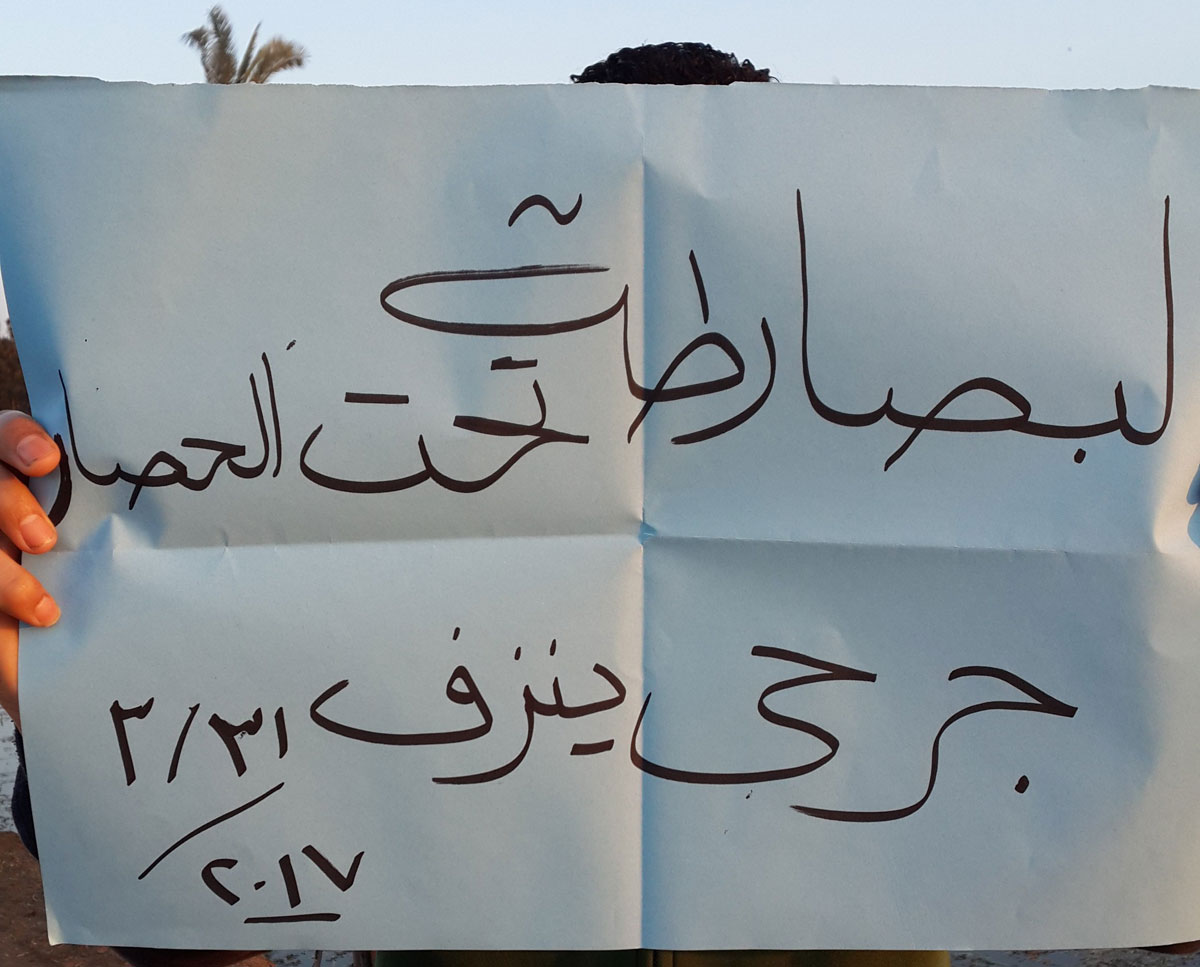 لبصارطة تحت الحصار
جرحى ينزف ٣١/٣
/ ٢٠١٧